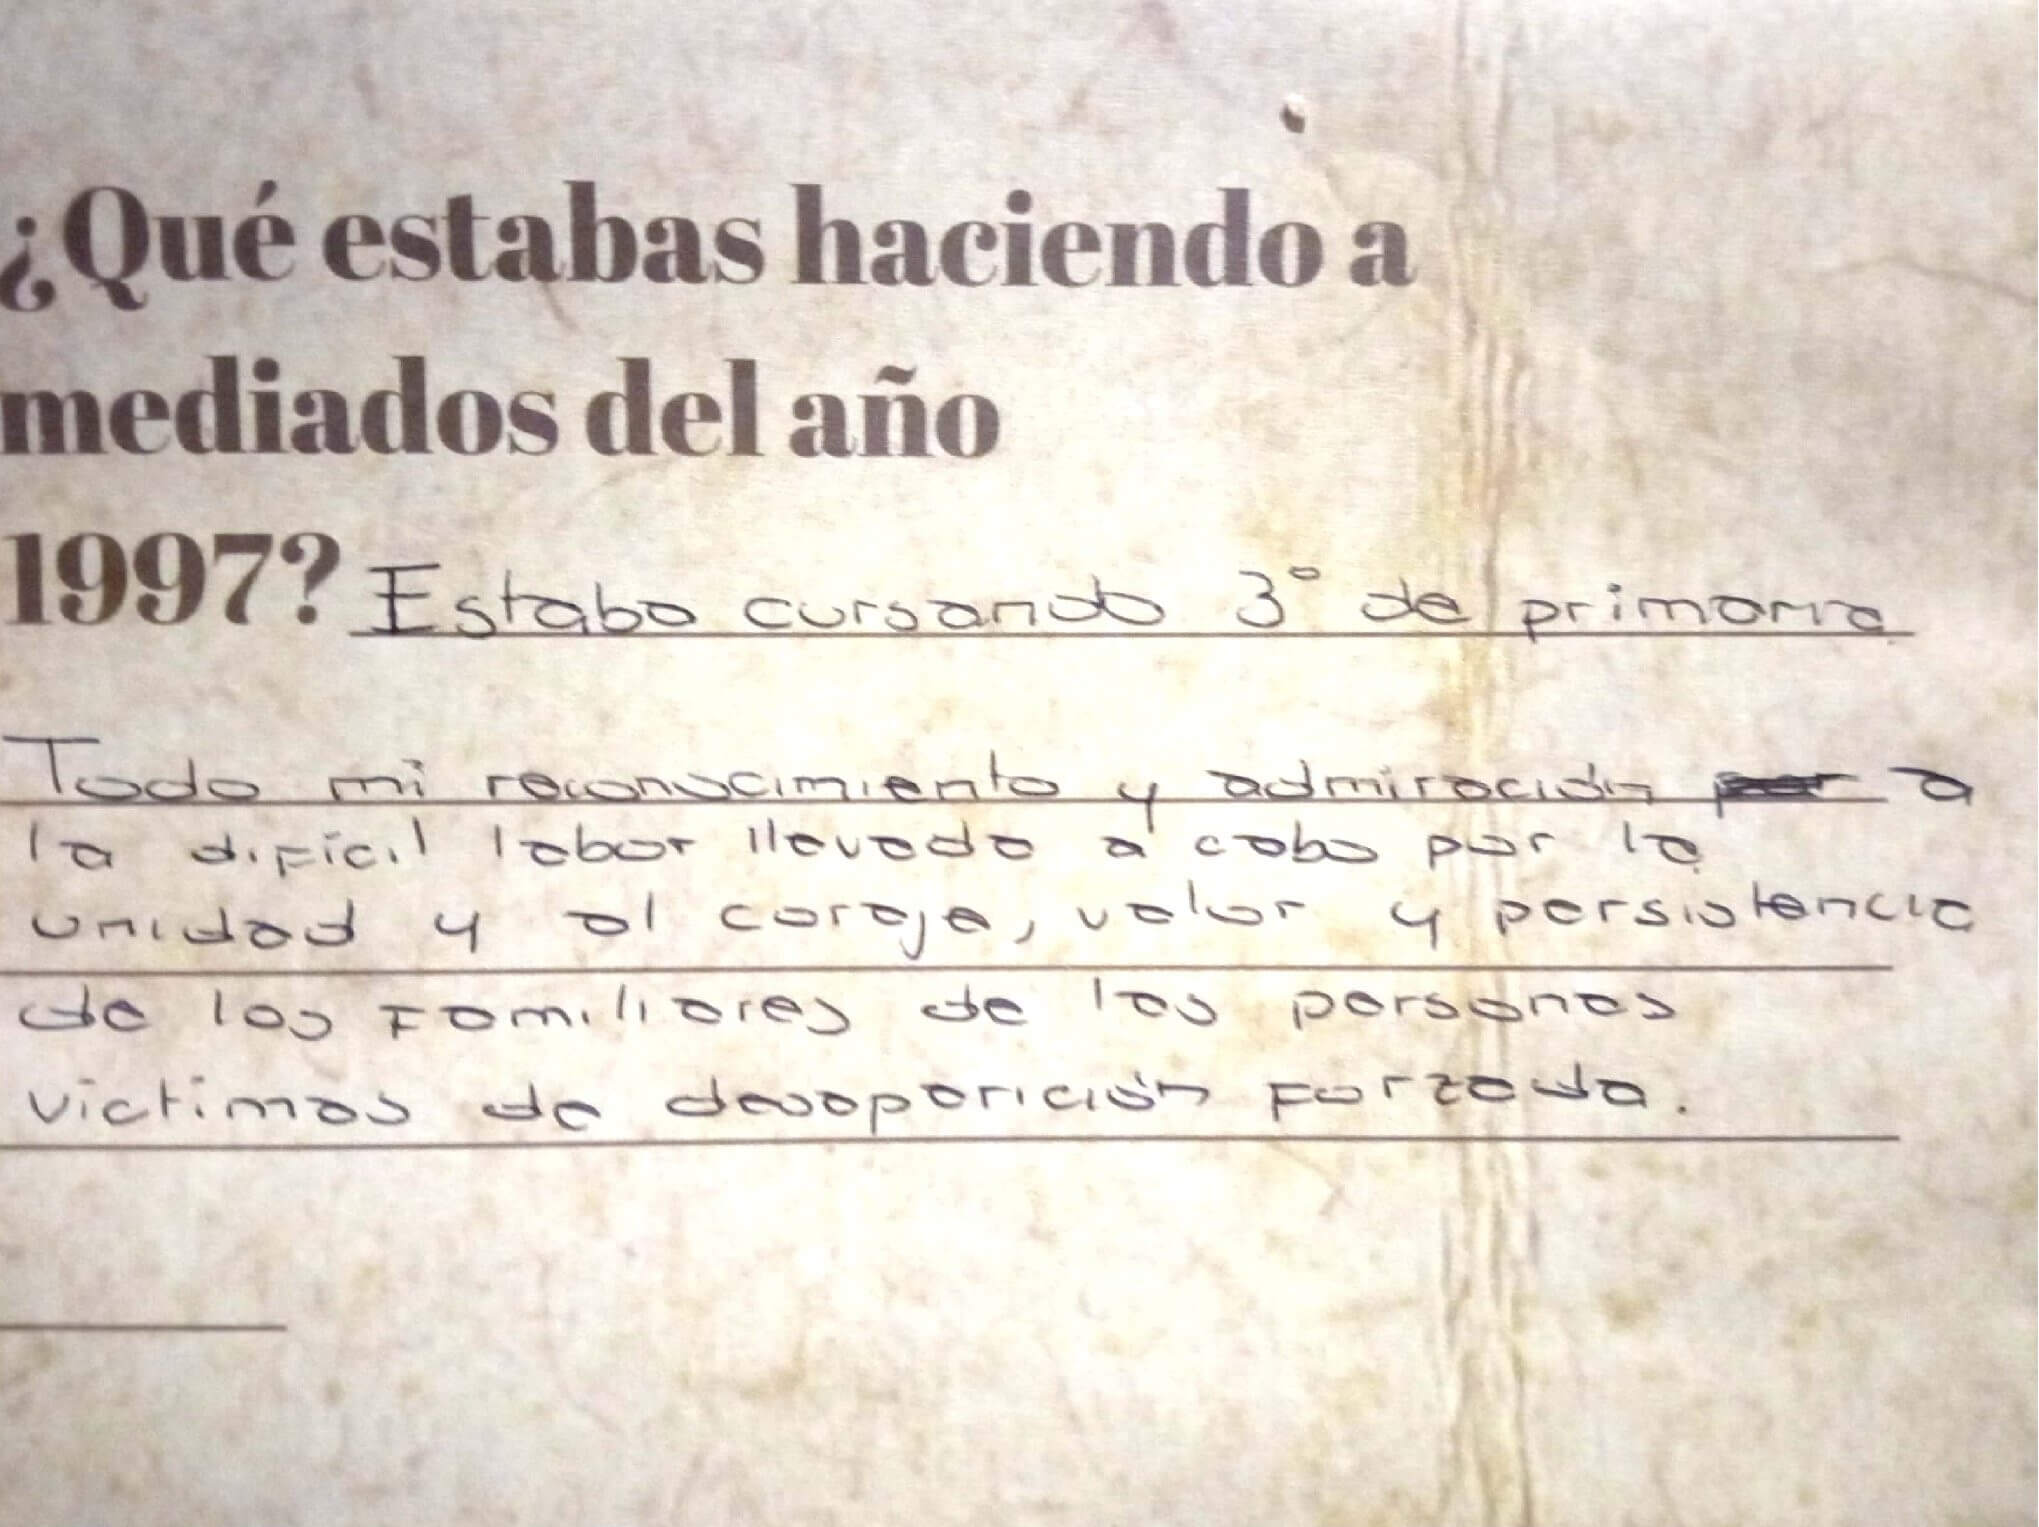 ¿Qué estabas haciendo a
mediados del año
1997? Estaba cursando 3° de primaria
Todo mi reconocimiento y admiración a
la difícil labor llevada a cabo por la
unidad y al coraje, valor y persistencia
de los familiares de las personas
victimas de desaparición forzada.